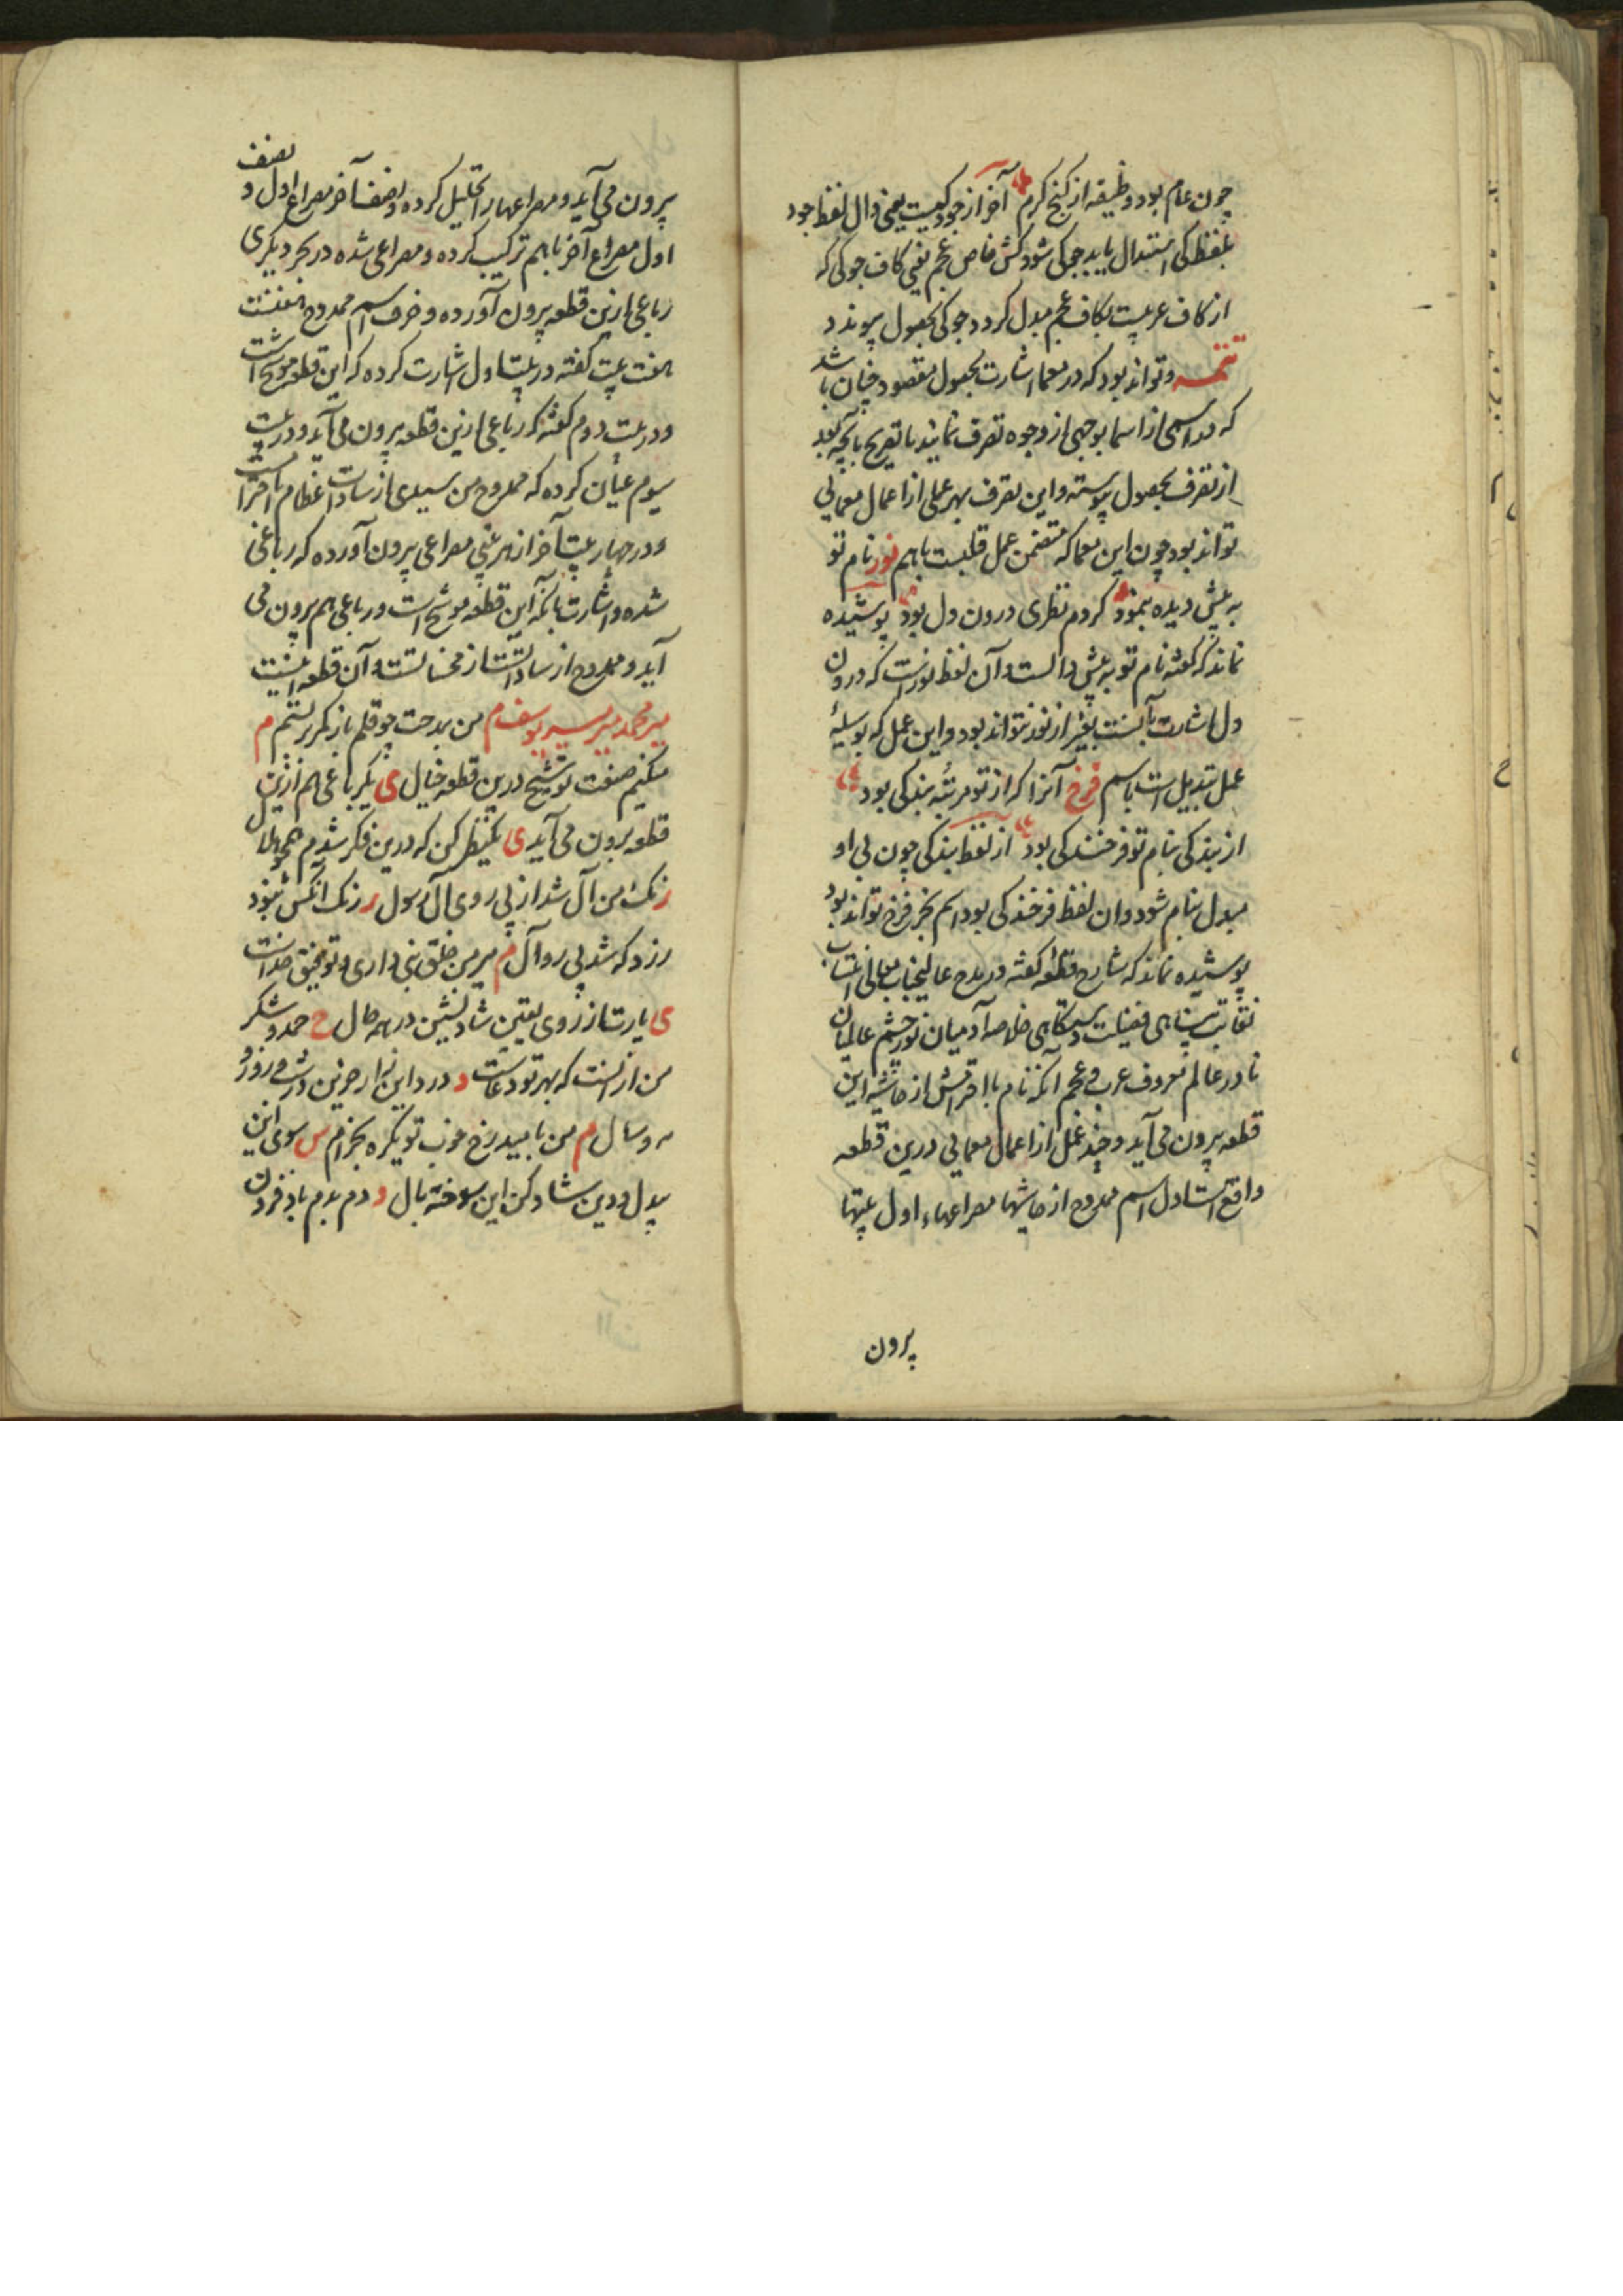 چون عام بود وظیفه از کنج کرم آخر از جود کیست یعنی دال لفظ جود
بلفظ کی استبدال یابد جوکی شود کش خاص عجم یعنی کاف جوکی که
از کاف عربیست بکاف عجم مبدل کردد جوکی بحصول پیوندد
تتمه و تواند بود که در معما اشارت بحصول مقصود چنان باشد
که در اسمی از اسما بوجهی از وجوه تصرف نمایند با تصریح بانچه بعد
از تصرف بحصول پیوسته و این تصرف بهر عملی از اعمال معمایی
تواند بود چون این معما که متضمن عمل قلبست باسم نور نام تو
به پیش دیده بنمود کردم نظری درون دل بود پوشیده
نماند که کفته نام تو به پیش دالست و آن لفظ نورست که درون
دل اشارت بآنست بغیر از نور نتواند بود و این عمل که بوسیلهٔ
عمل تبدیل است باسم فرخ آنرا که از تو مرتبهٔ بندکی بود
از بندکی بنام تو فرخندکی بود از لفظ بندکی چون بی او
مبدل بنام شود و ان لفظ فرخندکی بود اسم بجز فرخ نتواند بود
پوشیده نماند که شارح قطعهٔ کفته در مدح عالیجناب معالی انتساب
نقابت پناهی فضیلت دستکاهی خلاصه آدمیان نور چشم عالمیان
نادر عالم معروف عرب و عجم آنکه نام با اقرانش از حاشیه این
قطعه پرون می آید و چند عمل از اعمال معمایی درین قطعه
واقع است اول اسم ممدوح از حاشیها مصراعهاء اول بیتها
پرون
پرون می آید و مصراعها را تحلیل کرده و نصف آخر مصراع اول و نصف
اول مصراع آخر باهم ترکیب کرده و مصراعی شده در بحر دیکری
رباعی ازین قطعه پرون آورده و حرف اسم ممدوح
هفت بیت کفته در بیت اول اشارت کرده که این قطعه موشح است
و در بیت دوم کفته که رباعی ازین قطعه پرون می آید و در بیت
سیوم عیان کرده که ممدوح من سیدی از سادات عظام با احترامست
و در چهار بیت آخر از هر بیتی مصراعی پرون آورده که رباعی
شده و اشارت بآنکه این قطعه موشح است و رباعی هم پرون می
آید و ممدوح از ساداتست از محسناتست و آن قطعه اینست
میر محمد میر سید یوسف م من بمدحت چو قلم باز کرر بستم م
میکنم صنعت توشیح درین قطعه خیال ی یک رباعی هم ازین
قطعه برون می آید ی یک نظر کن که درین فکر شدم همچو هلال
ر نک من آل شد از پی روی آل رسول ر رزنک انکس نبود
رزد که شد پی رو آل م میر من خلق نبی داری و توفیق خداست
ی یارت از روی یقین شاد نشین در همه حال ح حمد و شکر
من از انست که بهر تو دعاست د درد این زار حزین در شب و روز و
مه و سال م من بامید رخ خوب تو یکره بخرام س سوی این
پدل و دین شاد کن این سوخته بال د دم بدم باد فزون